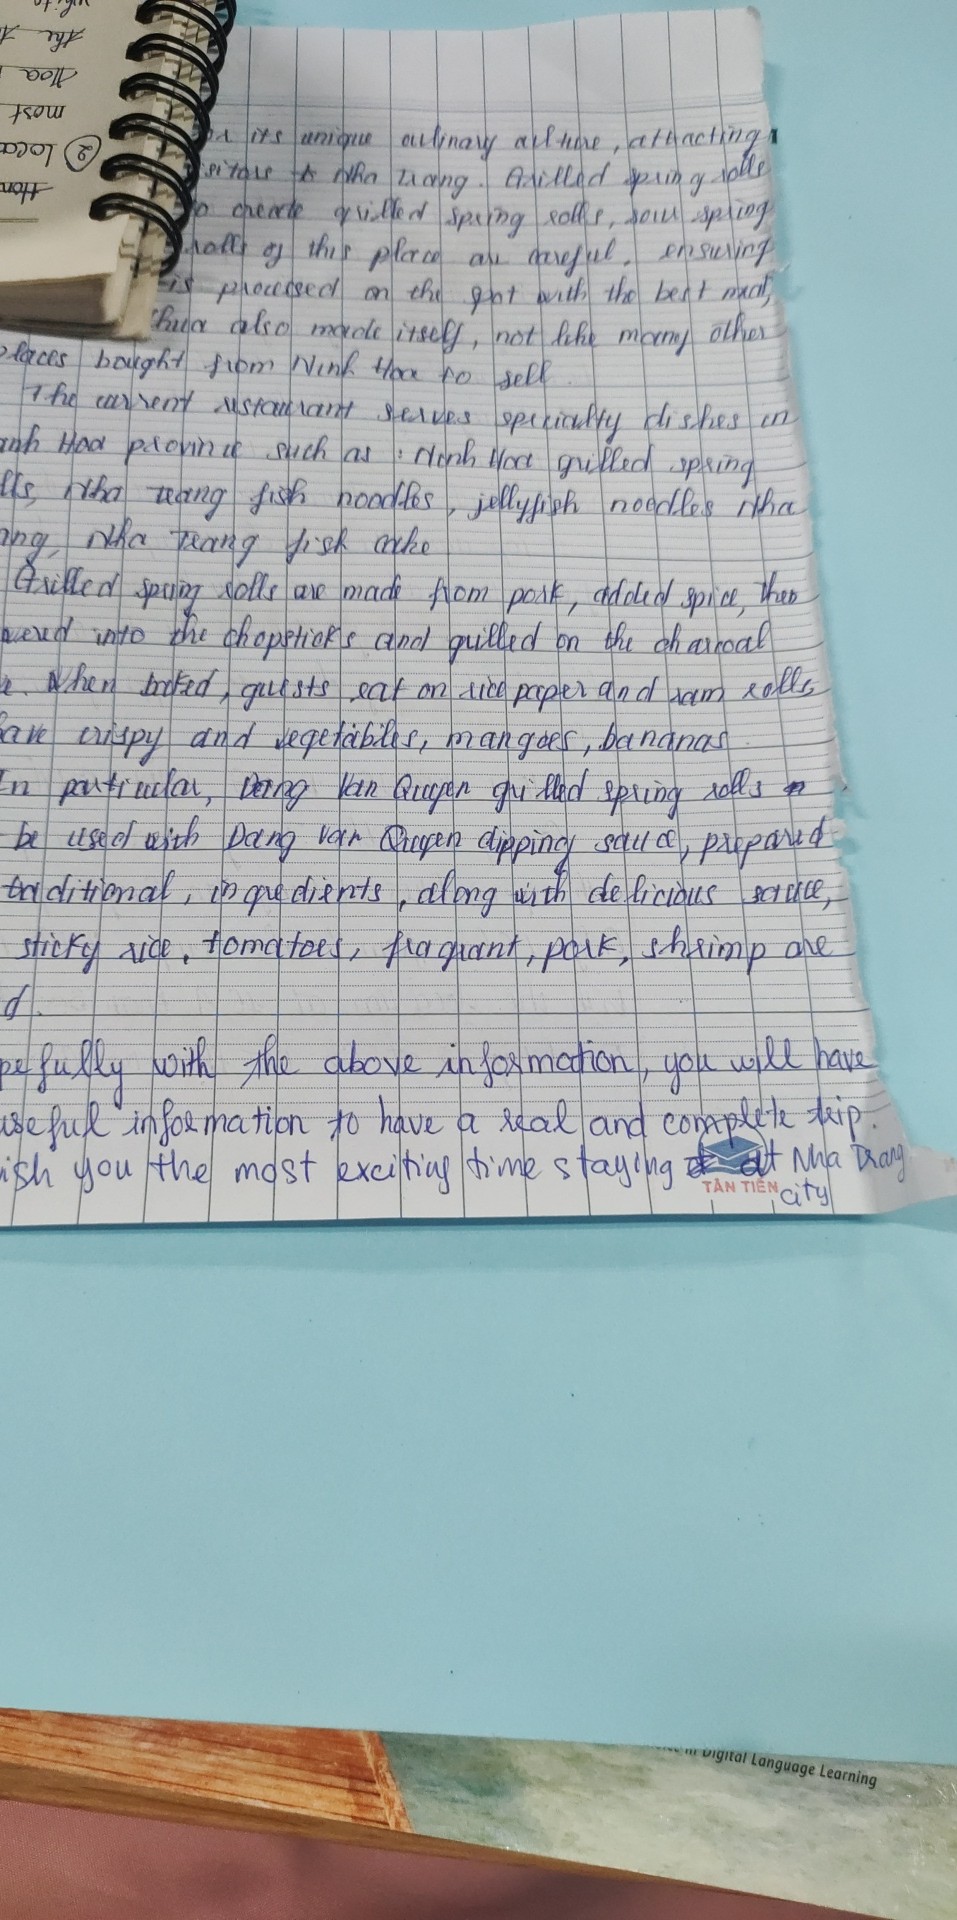 its unique culinary culture, attracting
to Nha Trang. Grilled spring rolls
create grilled spring rolls, sour spring
of this place are careful, ensuring
is processed on the spot with the best meat,
also made itself, not like many other
places bought from Ninh Hoa to sell.
The current restaurant serves specialty dishes in
anh Hoa province such as: Ninh Hoa grilled spring
lls, Nha Trang fish noodles, jellyfish noodles Nha
ang, Nha Trang fish cake
Grilled spring rolls are made from pork, added spice, then
into the chopsticks and grilled on the charcoal
e. When cooked, guests eat on rice paper and ram rolls,
ave crispy and vegetables, mangoes, bananas.
In particular, Dang Van Quyen grilled spring rolls
be used with Dang Van Quyen dipping sauce, prepared
traditional, ingredients, along with delicious sauce,
sticky rice, tomatoes, fragrant, pork, shrimp are
d.
pefully with the above information, you will have
useful information to have a real and complete trip.
ish you the most exciting time staying at Nha Trang
city
TÂN TIẾN
the
Hoa
most
② loca
in Digital Language Learning